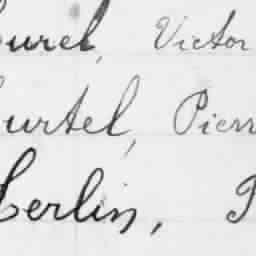 urel, Victor
urtel, Pierr
erlin, P